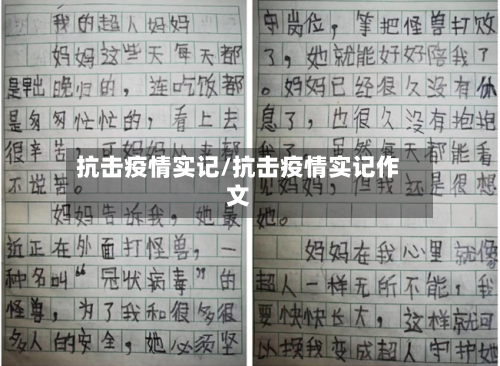 我的超人妈妈
妈妈这些天每天都
是早出晚归的，连吃饭都
是匆匆忙忙的，看上去
很辛苦，可妈妈从来都
不说苦。
妈妈告诉我，她最
近正在外面打怪兽，一
种名叫“冠状病毒”的
怪兽，为了我和很多很
多人的安全，她必须坚
守岗位，等把怪兽打败
了，她就能好好陪我了
。妈妈已经很久没有休
息了，也很久没有抱抱
我了，虽然每天都能看
见妈妈，但我还是很想
她。
妈妈在我心里就像
超人一样无所不能，我
要快快长大，这样就可
以换我变成超人守护她
抗击疫情实记/抗击疫情实记作
文